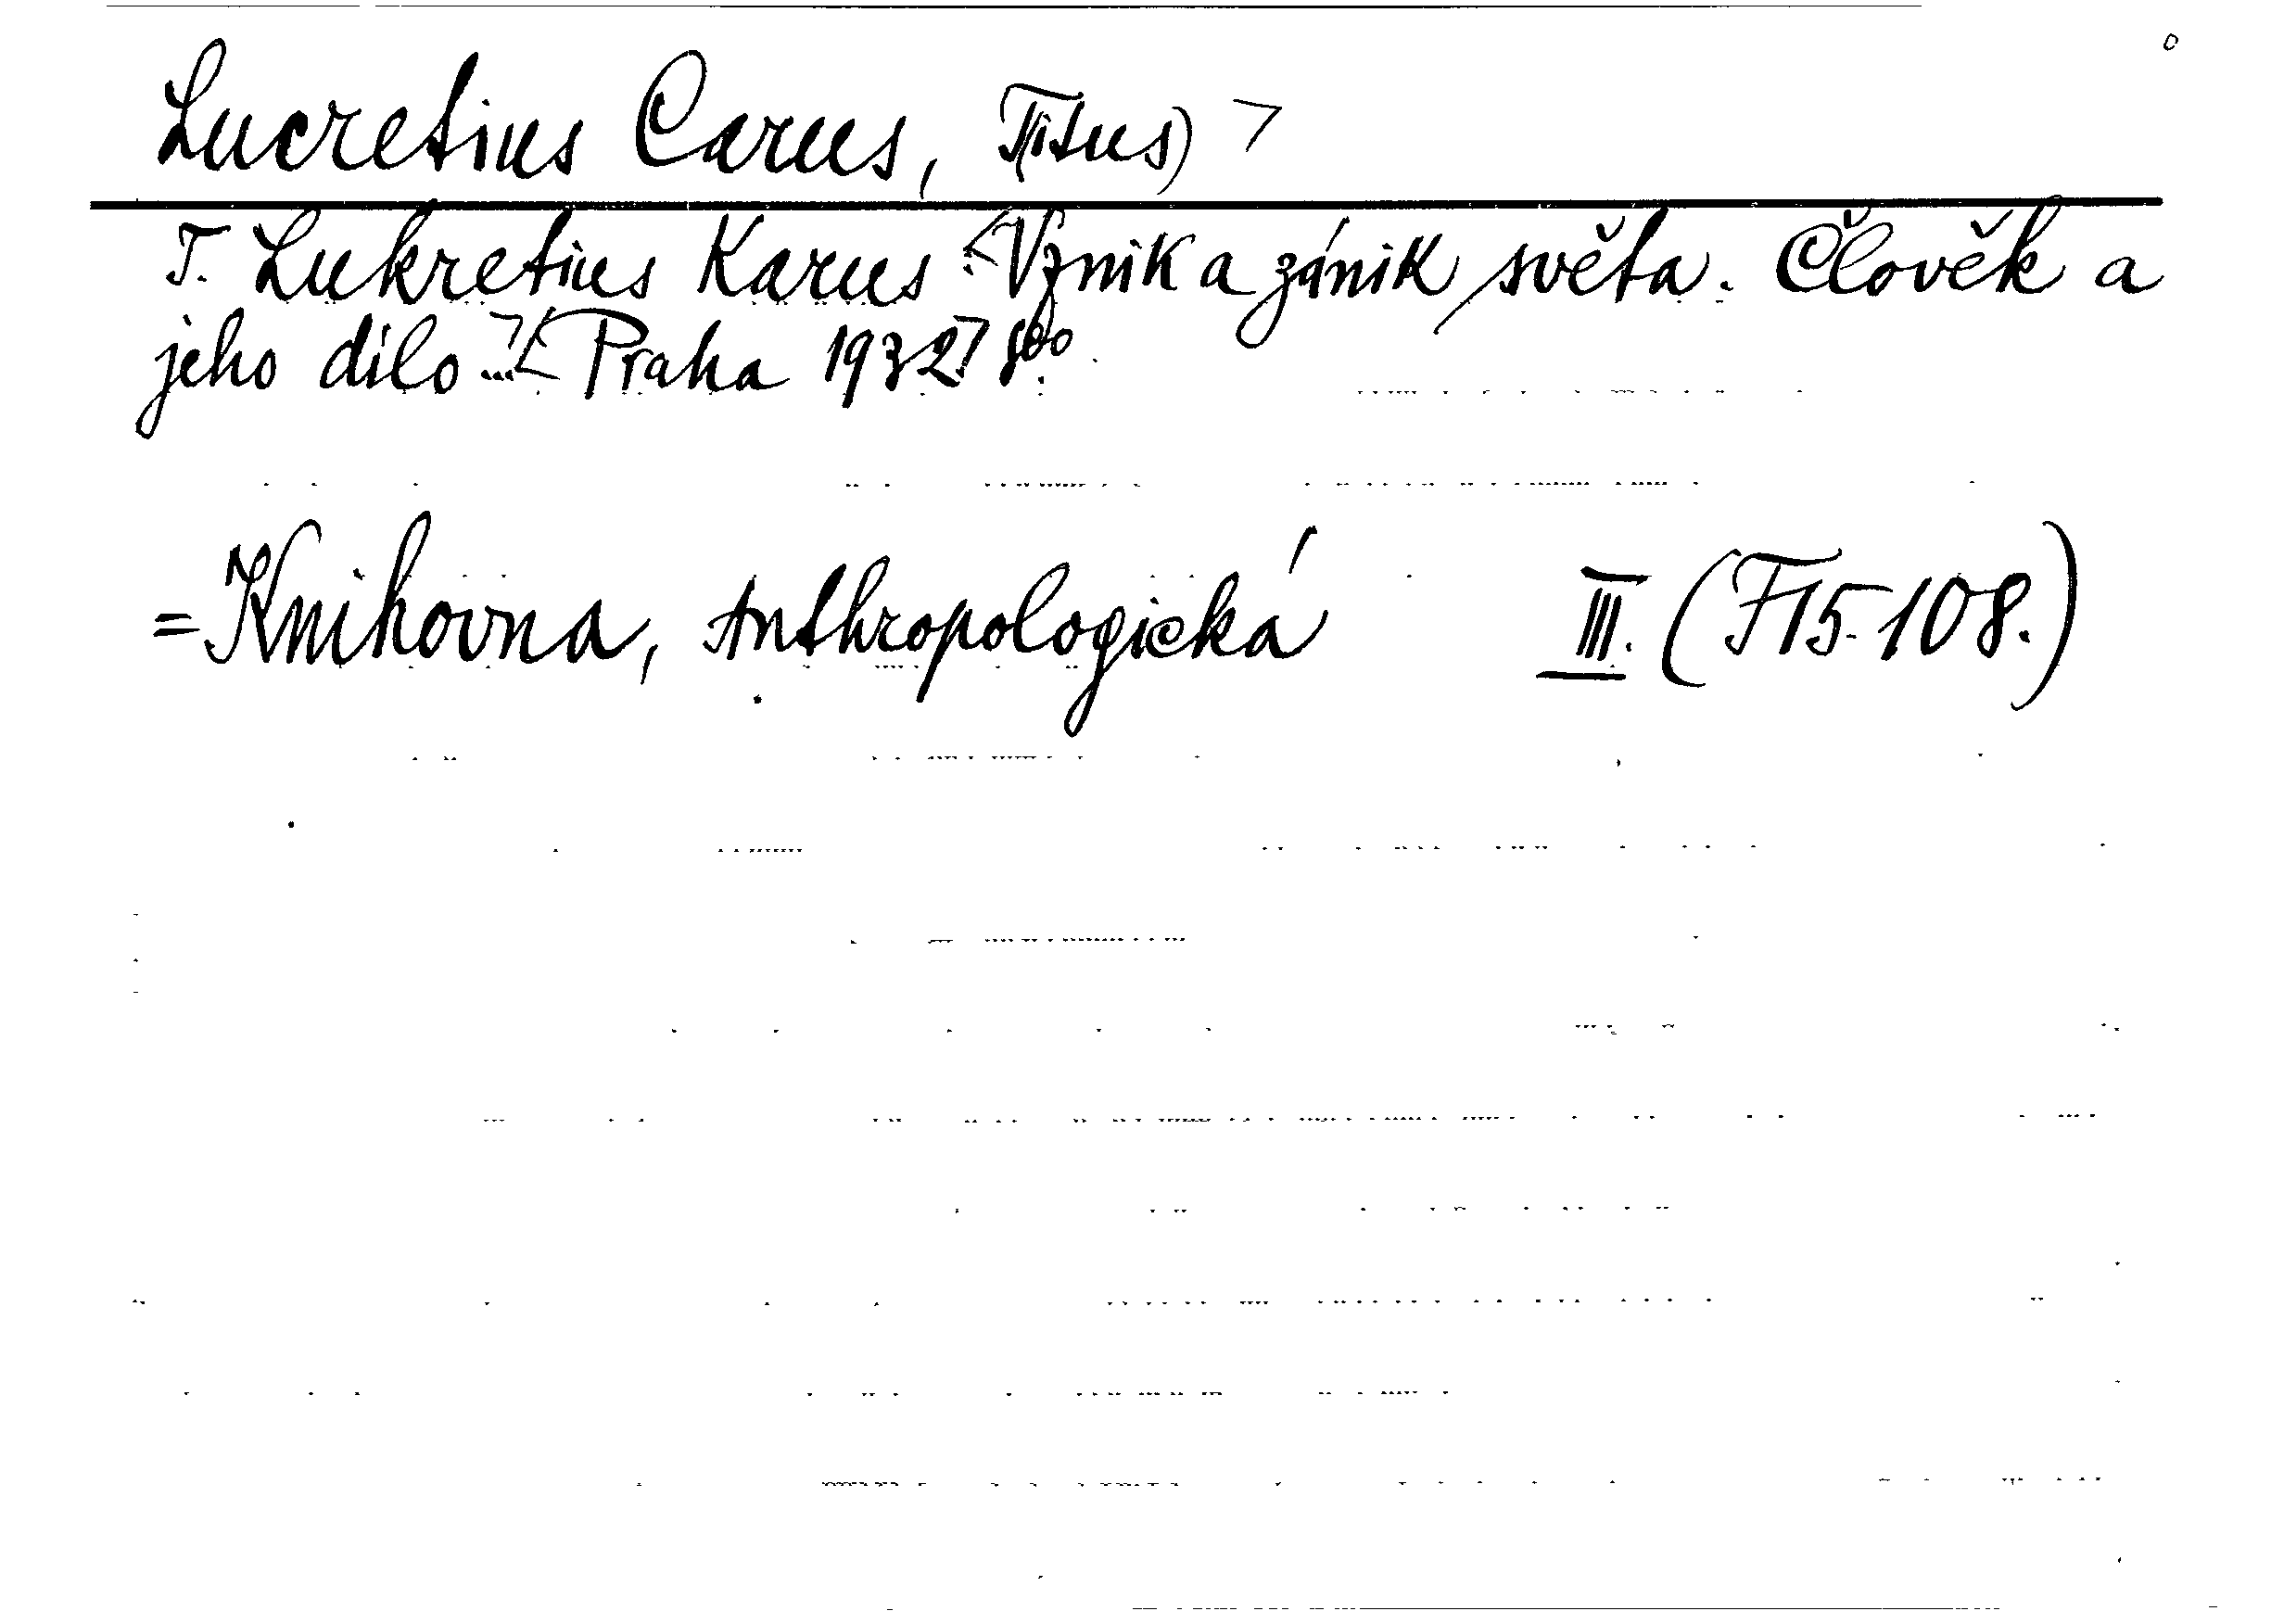 Lucretius Carus, T(itus) >
T. Lukretius Karus <Vznik a zánik světa. Člověk a
jeho dílo ...> < Praha 1932> 8°
= Knihovna, Anthropologická III. (F 15.-108.)